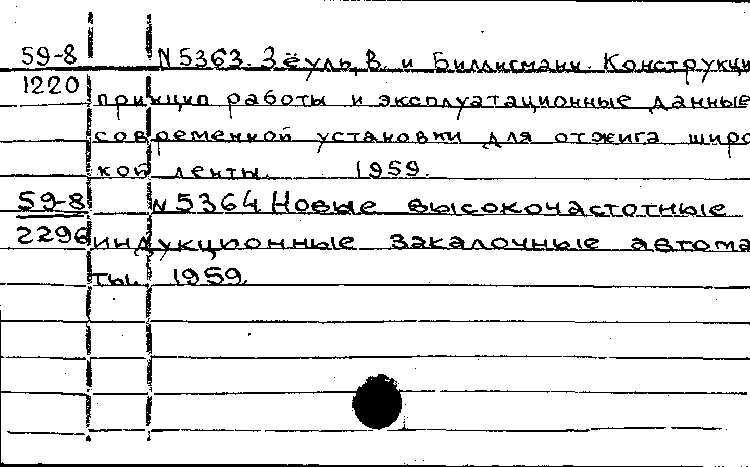 59-8 N 5363. Зёуль, В. и Биллигманн. Конструкци
1220 принцип работы и эксплуатационные данные
современной установки для отжига широ
кой ленты. 1959.
59-8 N 5364 Новые высокочастотные
2296 индукционные закалочные автома
ты. 1959.